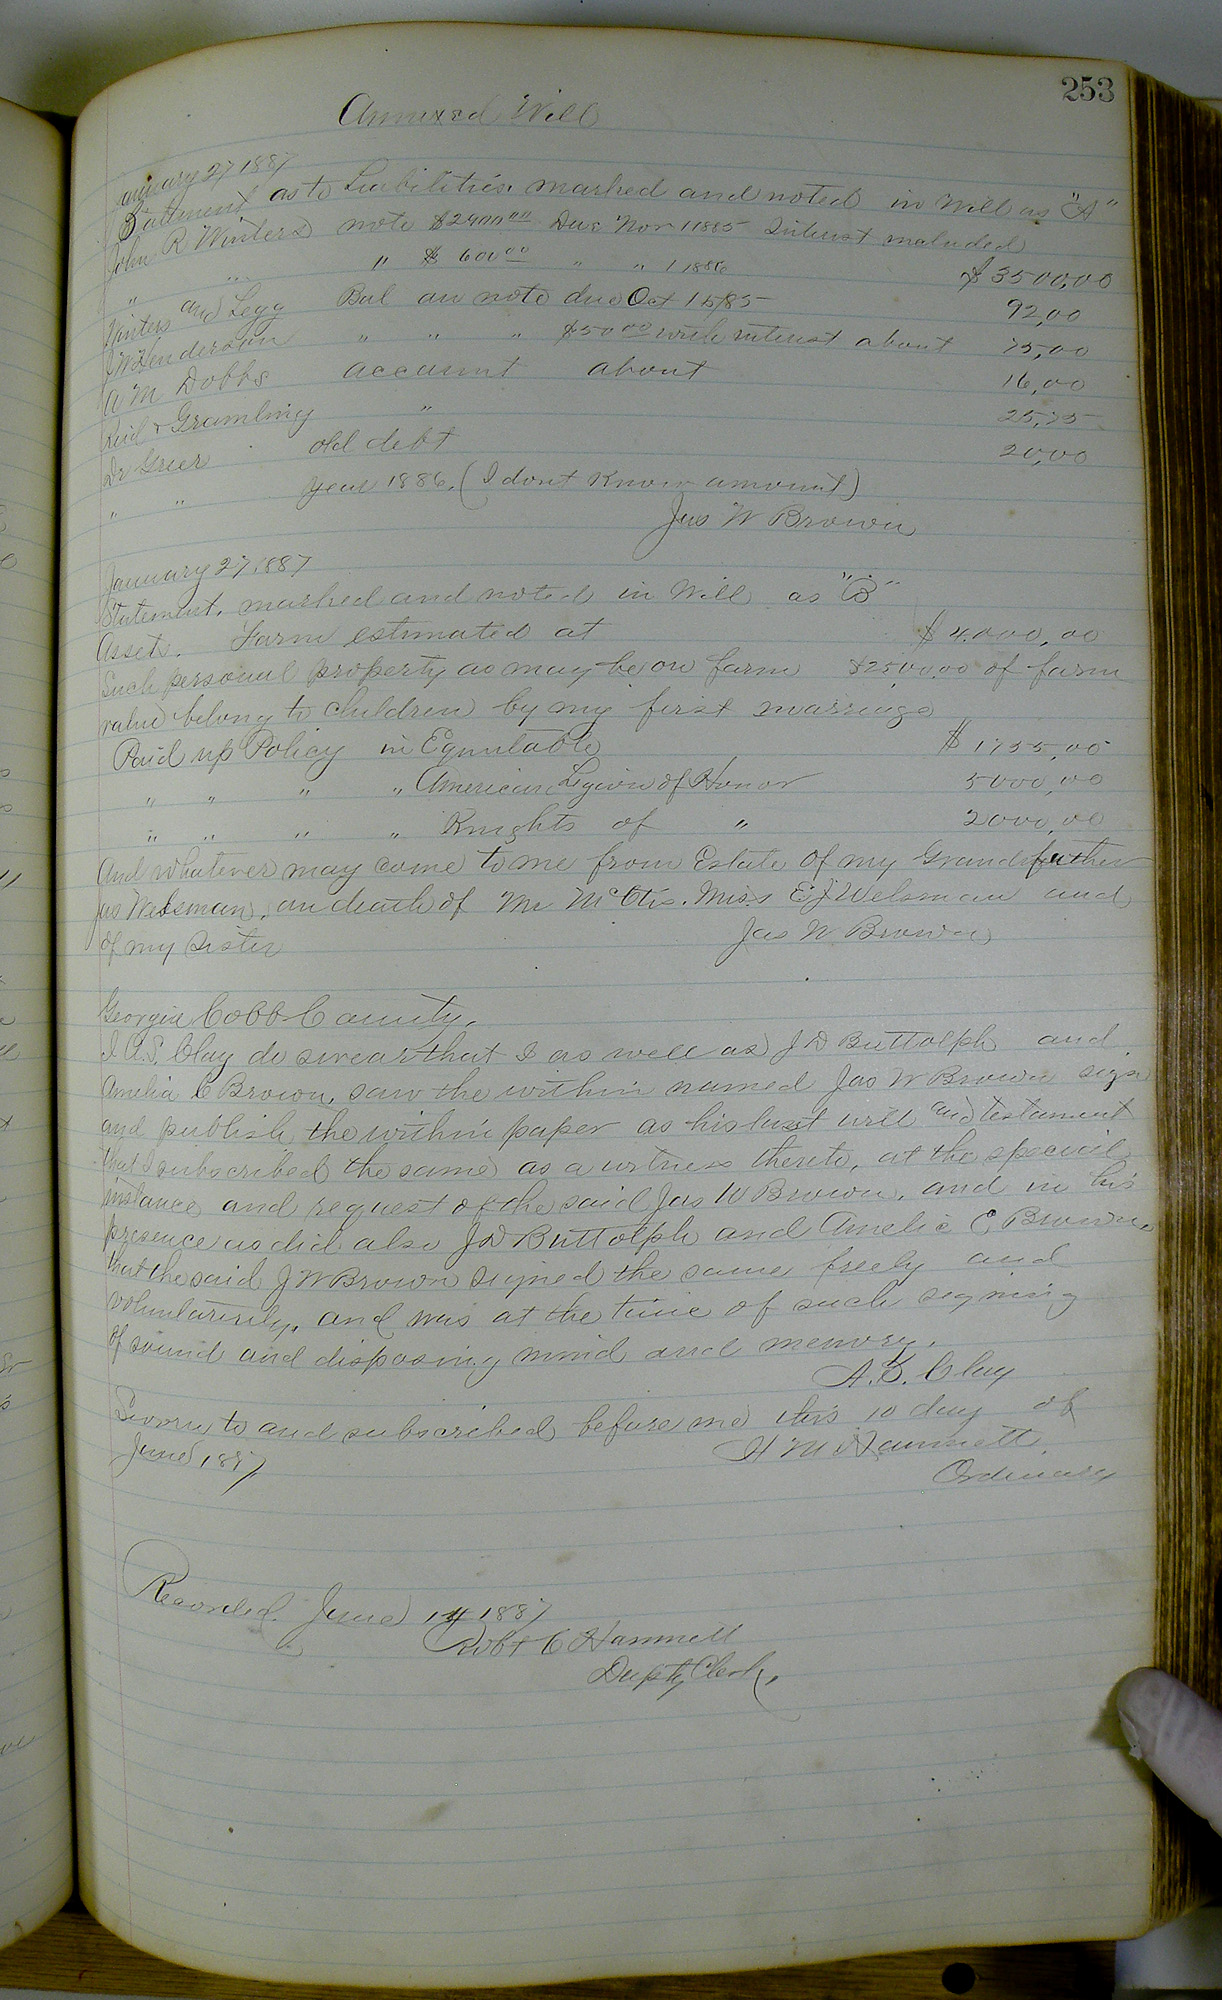 253
Annexed Will
January 27 1887
Statment as to Liabilities marked and noted in Will as "A"
John R Winters note $2900 00 Due Nov 1 1885 Interest included
" " " $ 600 00 " " 1 1886 $3500,00
Winters and Legg Bal on note due Oct 15/85 92,00
J W Henderson " " " $50 00 with interest about 75,00
A M Dobbs account about 16,00
Reid & Gramling " 25,75
Dr Grier old debt 20,00
" " year 1886. (I dont Know amount)
Jas W Brown
January 27 1887
Statement. marked and noted in Will as "B"
Asset. Farm estimated at $4.000,00
Such personal property as may be on farm $2500,00 of farm
value belong to children by my first marriage
Paid up Policy in Equitable $1755,00
" " " " American Legion of Honor 5000,00
" " " " Knights of " 2000,00
And whatever may come to me from Estate of my Grandfather
Jas Welsman, on death of Mr McOtis. Miss E J Welsman and
of my Sister Jas W. Brown
Georgia Cobb County.
I A.S. Clay do swear that I as well as J D Buttolph and
Amelia C Brown, saw the within named Jas W Brown sign
and publish the within paper as his last will and testament
that I subscribed the same as a witness thereto, at the special
instance and request of the said Jas W Brown, and in his
presence as did also J D Buttolph and Amelia E Brown,
that the said J W Brown signed the same freely and
voluntarily, and was at the time of such signing
of sound and disposing mind and memory.
A. S. Clay
Sworn to and subscribed before me this 10 day of
June 1887 H M Hammett.
Ordinary
Recorded June 14 1887
Robt C Hammett
Depty Clerk,